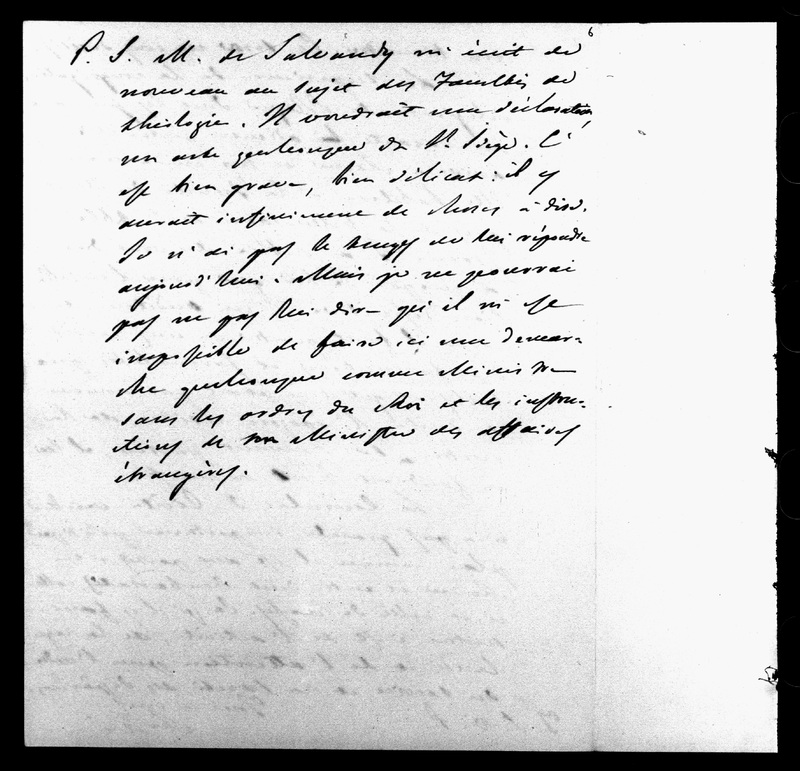 6
P. S. M. de Salvandy m'écrit de
nouveau au sujet des Facultés de
théologie. Il voudrait une déclaration,
un acte quelconque du St Siège. C'
est bien grave, bien délicat: il y
aurait infiniment de choses à dire.
Je n'ai pas le temps de lui répondre
aujourd'hui. Mais je ne pourrai
pas ne pas lui dire qu'il m'est
impossible de faire ici une démar-
che quelconque comme Ministre
sans les ordres du Roi et les instru-
ctions de son Ministre des affaires
étrangères.